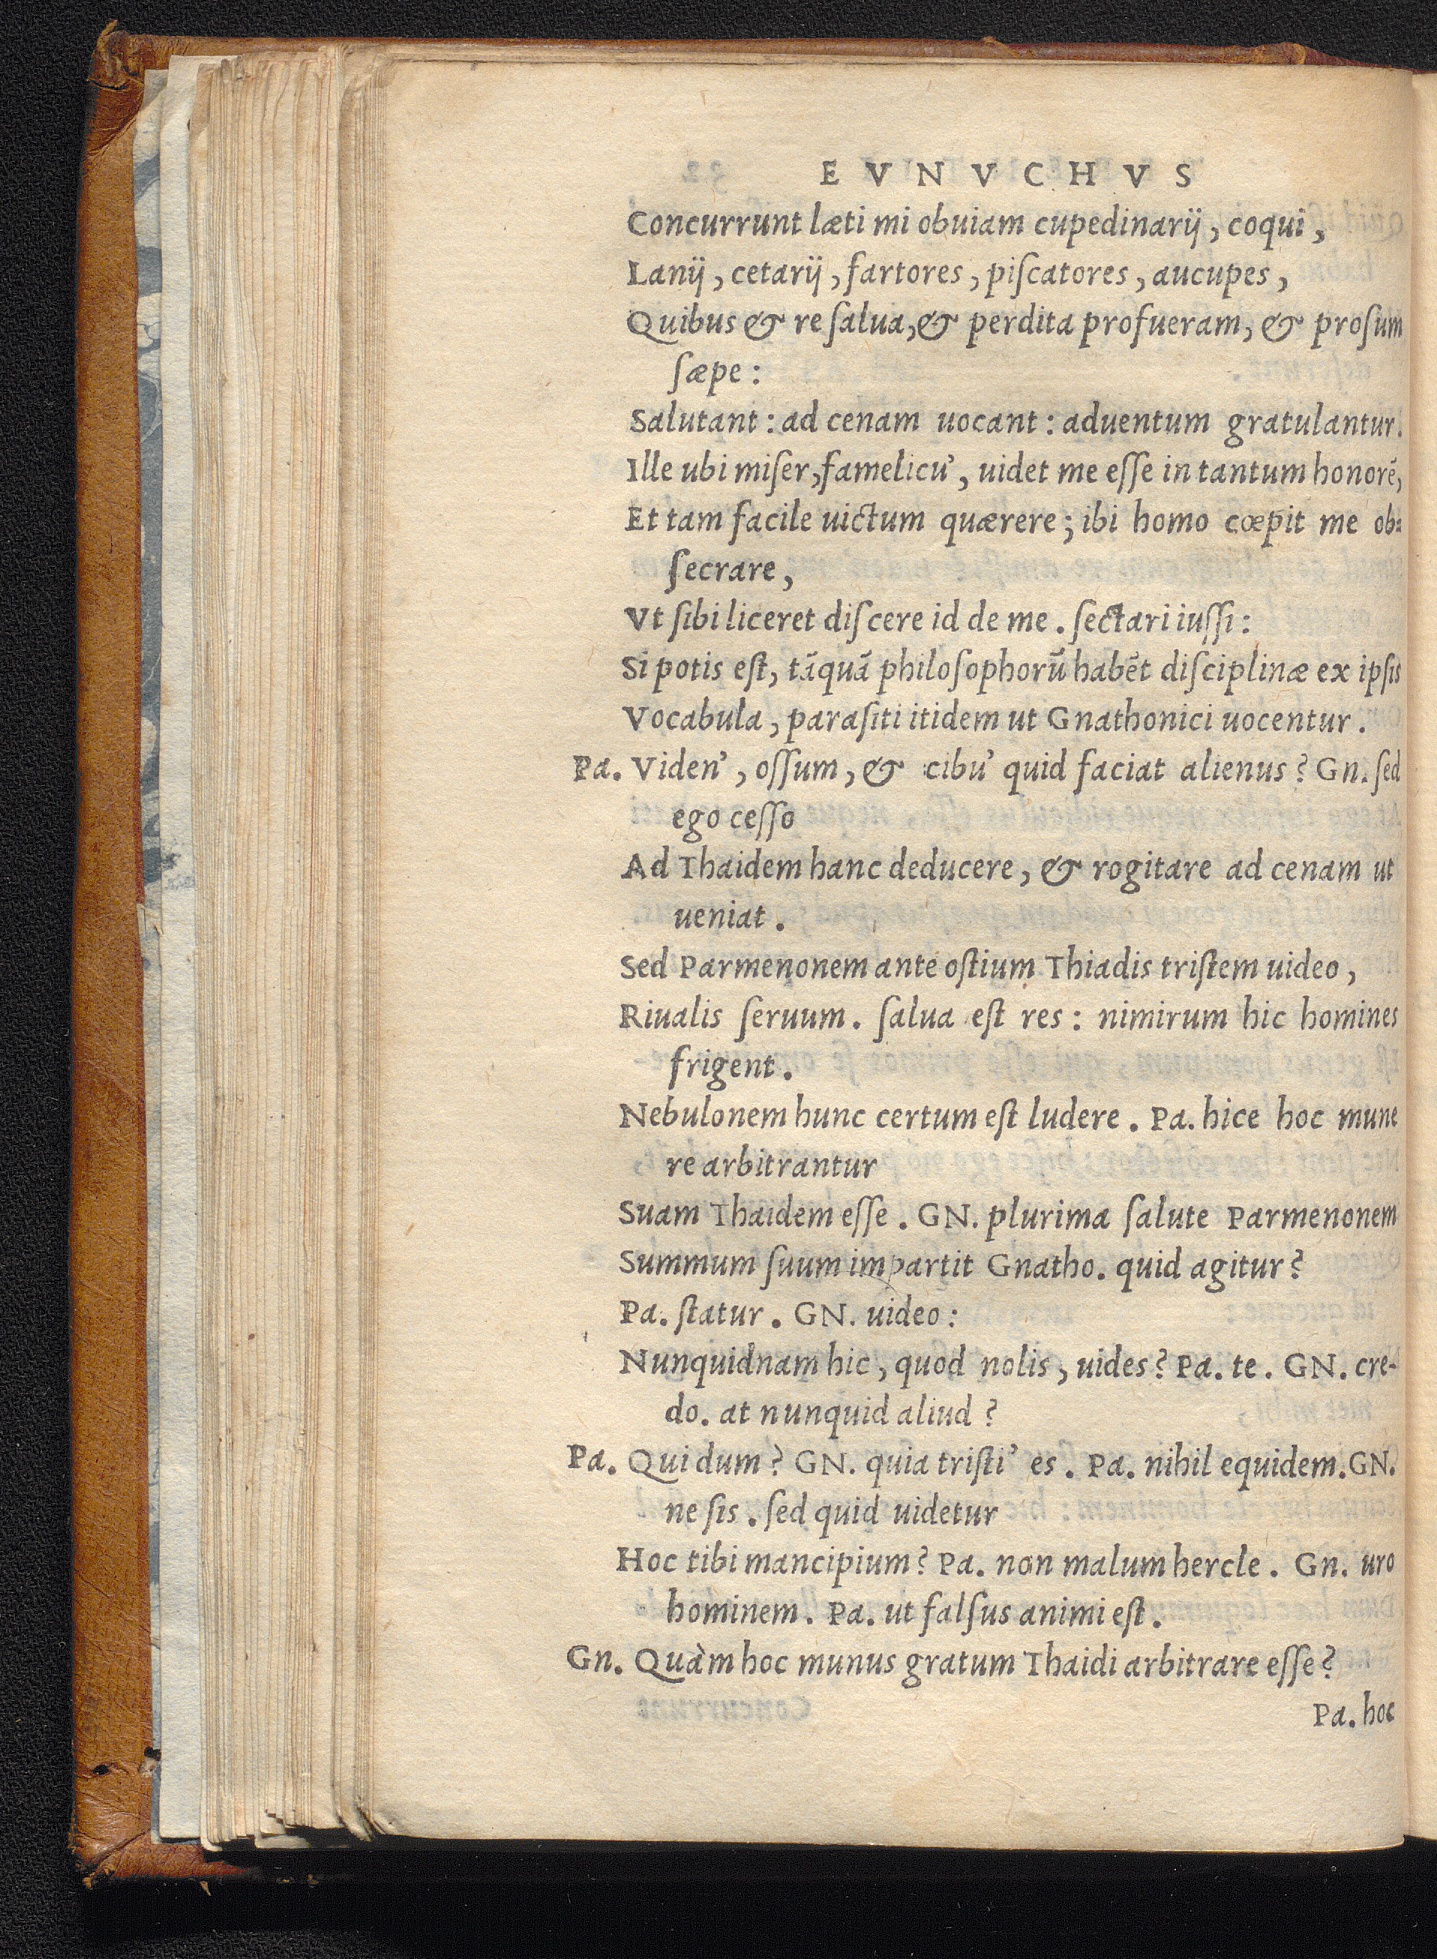 EVNVCHVS
Concurrunt læti mi obuiam cupedinarij, coqui,
Lanij, cetarij, fartores, piſcatores, aucupes,
Quibus & re ſalua, & perdita profueram, & proſum
ſæpe:
Salutant: ad cenam uocant: aduentum gratulantur.
Ille ubi miſer, famelicu', uidet me eſſe in tantum honorẽ,
Et tam facile uictum quærere; ibi homo cœpit me ob=
ſecrare,
Vt ſibi liceret diſcere id de me. ſectari iuſſi:
Si potis eſt, tãquã philoſophorũ habẽt diſciplinæ ex ipſis
Vocabula, paraſiti itidem ut Gnathonici uocentur.
Pa. Viden', oſſum, & cibu' quid faciat alienus? Gn. ſed
ego ceſſo
Ad Thaidem hanc deducere, & rogitare ad cenam ut
ueniat.
Sed Parmenonem ante oſtium Thiadis triſtem uideo,
Riualis ſeruum. ſalua eſt res: nimirum hic homines
frigent.
Nebulonem hunc certum eſt ludere. Pa. hice hoc mune
re arbitrantur
Suam Thaidem eſſe. GN. plurima ſalute Parmenonem
Summum ſuum impartit Gnatho. quid agitur?
Pa. ſtatur. GN. uideo:
Nunquidnam hic, quod nolis, uides? Pa. te. GN. cre-
do. at nunquid aliud?
Pa. Qui dum? GN. quia triſti' es. Pa. nihil equidem. GN.
ne ſis. ſed quid uidetur
Hoc tibi mancipium? Pa. non malum hercle. Gn. uro
hominem. Pa. ut falſus animi eſt.
Gn. Quàm hoc munus gratum Thaidi arbitrare eſſe?
Pa. hoc